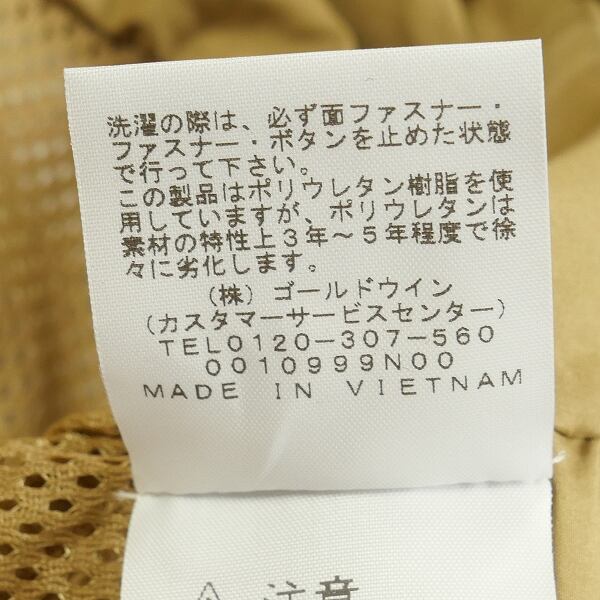 洗濯の際は、必ず面ファスナー・
ファスナー・ボタンを止めた状態
で行って下さい。
この製品はポリウレタン樹脂を使
用していますが、ポリウレタンは
素材の特性上3年〜5年程度で徐
々に劣化します。
(株)ゴールドウイン
(カスタマーサービスセンター)
TEL0120-307-560
0010999N00
MADE IN VIETNAM
⚠ 注意